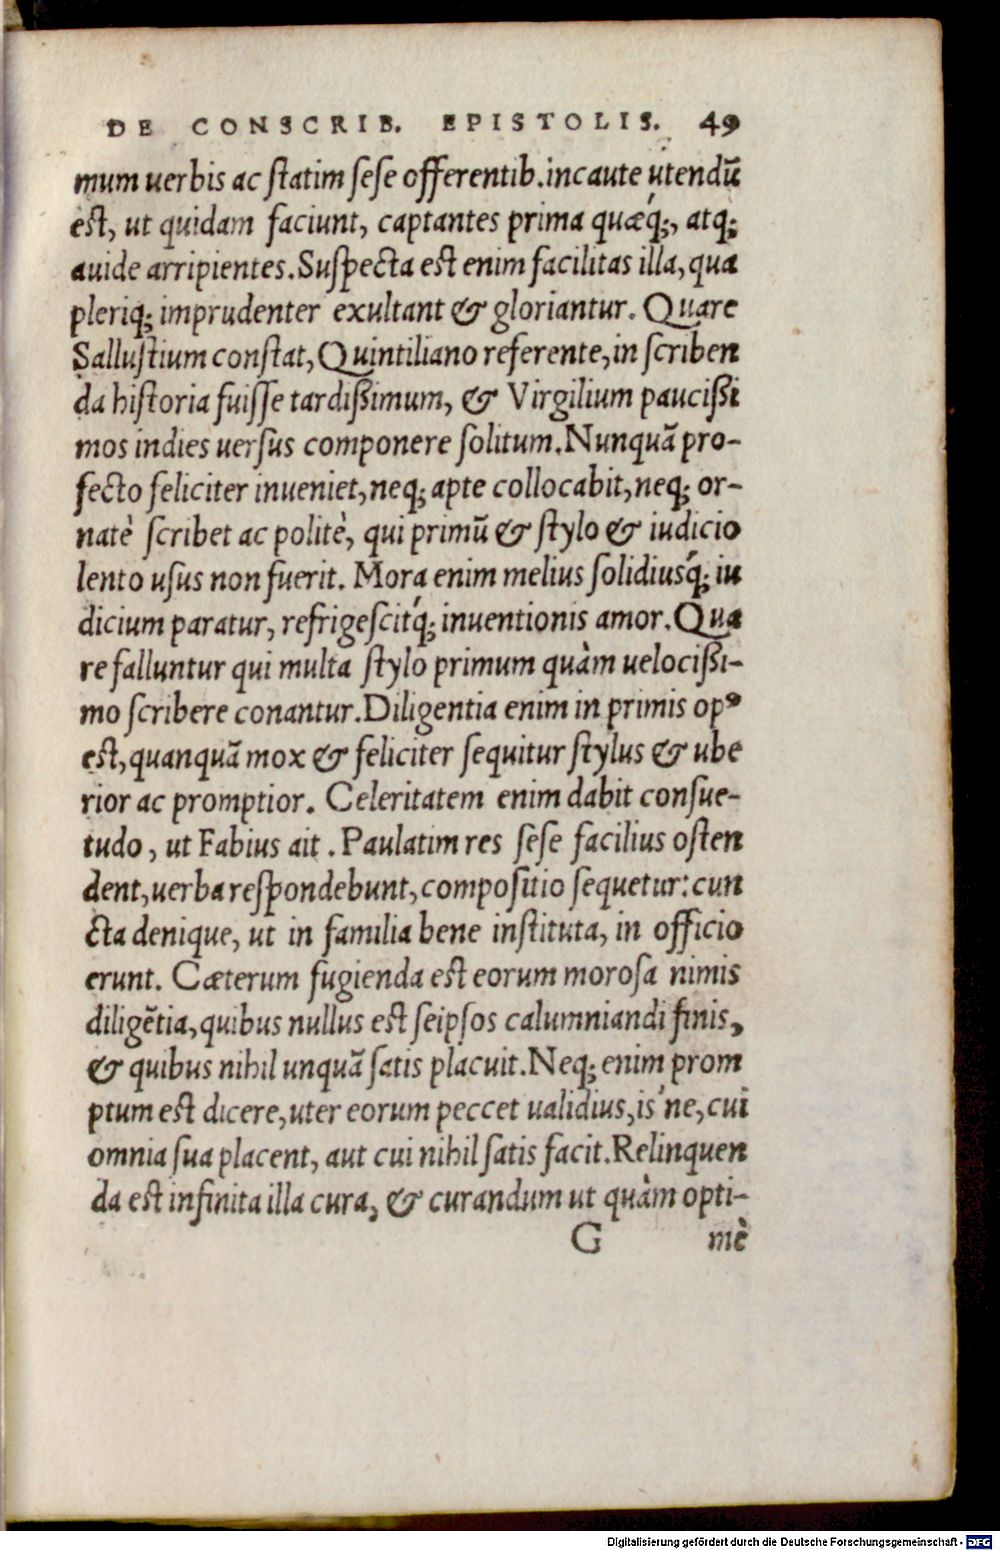 DE CONSCRIB. EPISTOLIS. 49
mum uerbis ac ſtatim ſeſe offerentib. incaute utendũ
eſt, ut quidam faciunt, captantes prima quæq́;, atq;
auide arripientes. Suſpecta est enim facilitas illa, qua
pleriq; imprudenter exultant & gloriantur. Quare
Salluſtium conſtat, Quintiliano referente, in ſcriben
da hiſtoria fuiſſe tardißimum, & Virgilium paucißi
mos indies uerſus componere ſolitum. Nunquã pro-
fecto feliciter inueniet, neq; apte collocabit, neq; or-
natè ſcribet ac politè, qui primũ & ſtylo & iudicio
lento uſus non fuerit. Mora enim melius ſolidiusq́; iu
dicium paratur, refrigeſcitq́; inuentionis amor. Qua
re falluntur qui multa ſtylo primum quàm uelocißi-
mo ſcribere conantur. Diligentia enim in primis opꝰ
eſt, quanquã mox & feliciter ſequitur ſtylus & ube
rior ac promptior. Celeritatem enim dabit conſue-
tudo, ut Fabius ait. Paulatim res ſeſe facilius oſten
dent, uerba reſpondebunt, compoſitio ſequetur: cun
cta denique, ut in familia bene inſtituta, in officio
erunt. Cæterum fugienda est eorum moroſa nimis
diligẽtia, quibus nullus est ſeipſos calumniandi finis,
& quibus nihil unquã ſatis placuit. Neq; enim prom
ptum est dicere, uter eorum peccet ualidius, is'ne, cui
omnia ſua placent, aut cui nihil ſatis facit. Relinquen
da est infinita illa cura, & curandum ut quàm opti-
G mè
Digitalisierung gefördert durch die Deutsche Forschungsgemeinschaft - DFG